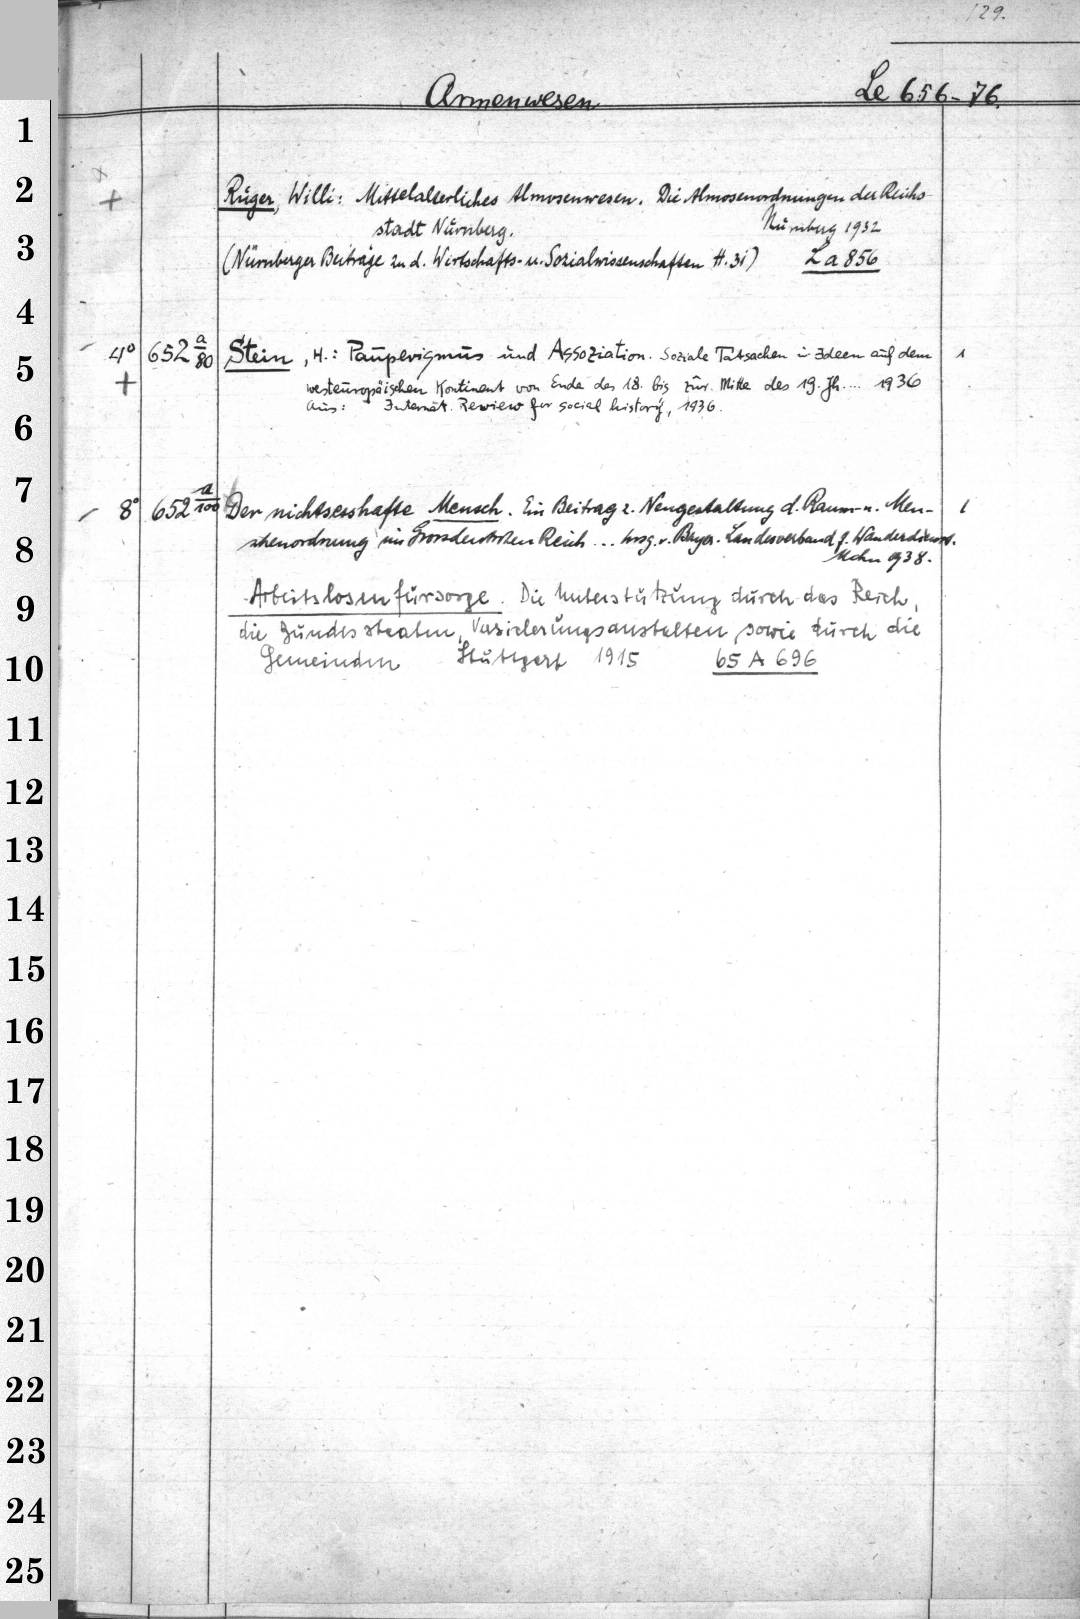 129.
Armenwesen Le 656-76.
1
2
3
4
5
6
7
8
9
10
11
12
13
14
15
16
17
18
19
20
21
22
23
24
25
+
Rüger, Willi: Mittelalterliches Almosenwesen. Die Almosenordnungen der Reichs
stadt Nürnberg. Nürnberg 1932
(Nürnberger Beiträge zu d. Wirtschafts- u. Sozialwissenschaften H. 31) La 856
4° 652 a/80 Stein, H.: Pauperismus und Assoziation. Soziale Tatsachen u. Ideen auf dem 1
+ westeuropäischen Kontinent von Ende des 18. bis zur Mitte des 19. Jh.... 1936
Aus: Internat. Review for social history, 1936.
8° 652 a/100 Der nichtsesshafte Mensch. Ein Beitrag z. Neugestaltung d. Raum- u. Men- 1
schenordnung im Grossdeutschen Reich ... hrsg. v. Bayer. Landesverband f. Wanderdienst.
Mchn 938.
Arbeitslosenfürsorge. Die Unterstützung durch das Reich,
die Bundesstaaten, Versicherungsanstalten sowie durch die
Gemeinden Stuttgart 1915 65 A 696